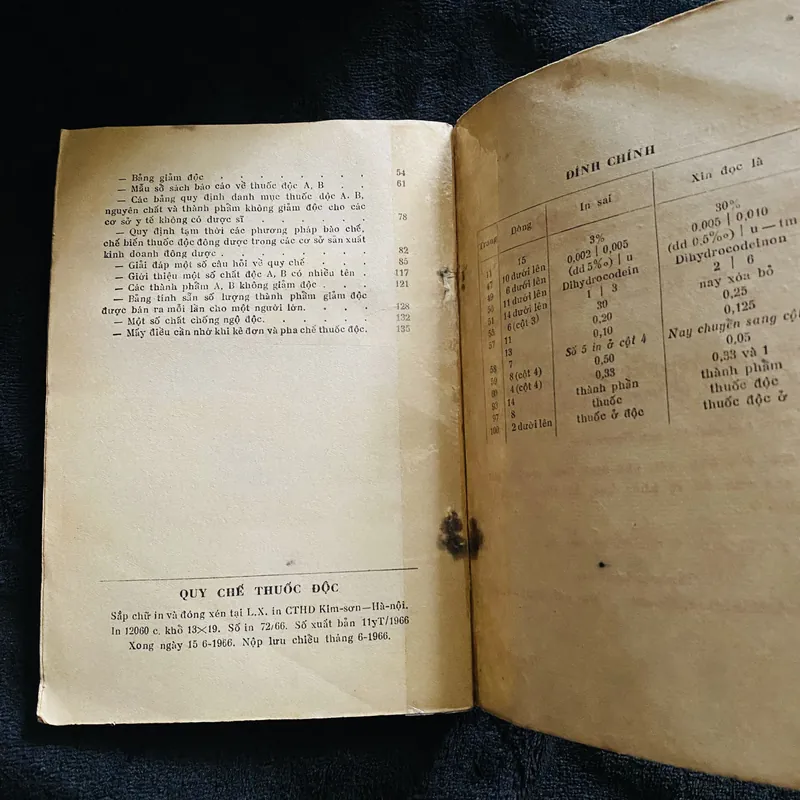 — Bảng giảm độc . . . . . . . . 54
— Mẫu sổ sách báo cáo về thuốc độc A, B . . 61
— Các bảng quy định danh mục thuốc độc A, B,
nguyên chất và thành phẩm không giảm độc cho các
cơ sở y tế không có dược sĩ . . . . . . 78
— Quy định tạm thời các phương pháp bào chế,
chế biến thuốc độc đông dược trong các cơ sở sản xuất
kinh doanh đông dược. . . . . . . . 82
— Giải đáp một số câu hỏi về quy chế . . . . 85
— Giới thiệu một số chất độc A, B có nhiều tên . 117
— Các thành phẩm A, B không giảm độc . . . 121
— Bảng tính sẵn số lượng thành phẩm giảm độc
được bán ra mỗi lần cho một người lớn. . . . 128
— Một số chất chống ngộ độc. . . . . . 132
— Mấy điều cần nhớ khi kê đơn và pha chế thuốc độc. 135
QUY CHẾ THUỐC ĐỘC
Sắp chữ in và đóng xén tại L.X. in CTHD Kim-sơn—Hà-nội.
In 12060 c. khổ 13×19. Số in 72/66. Số xuất bản 11yT/1966
Xong ngày 15 6-1966. Nộp lưu chiều tháng 6-1966.
ĐÍNH CHÍNH
Trang Dòng In sai Xin đọc là
11 15 3% 30%
47 10 dưới lên 0,002 | 0,005 0,005 | 0,010
49 6 dưới lên (dd 5‰) | u (dd 0,5‰) | u — tm
50 11 dưới lên Dihydrocodein Dihydrocodeinon
51 14 dưới lên 1 | 3 2 | 6
55 6 (cột 3) 30 nay xóa bỏ
57 11 0,20 0,25
13 0,10 0,125
58 7 Số 5 in ở cột 4 Nay chuyển sang cột
59 8 (cột 4) 0,50 0,05
4 (cột 4) 0,33 0,33 và 1
14 thành phần thành phẩm
97 8 thuốc thuốc độc
100 2 dưới lên thuốc ở độc thuốc độc ở